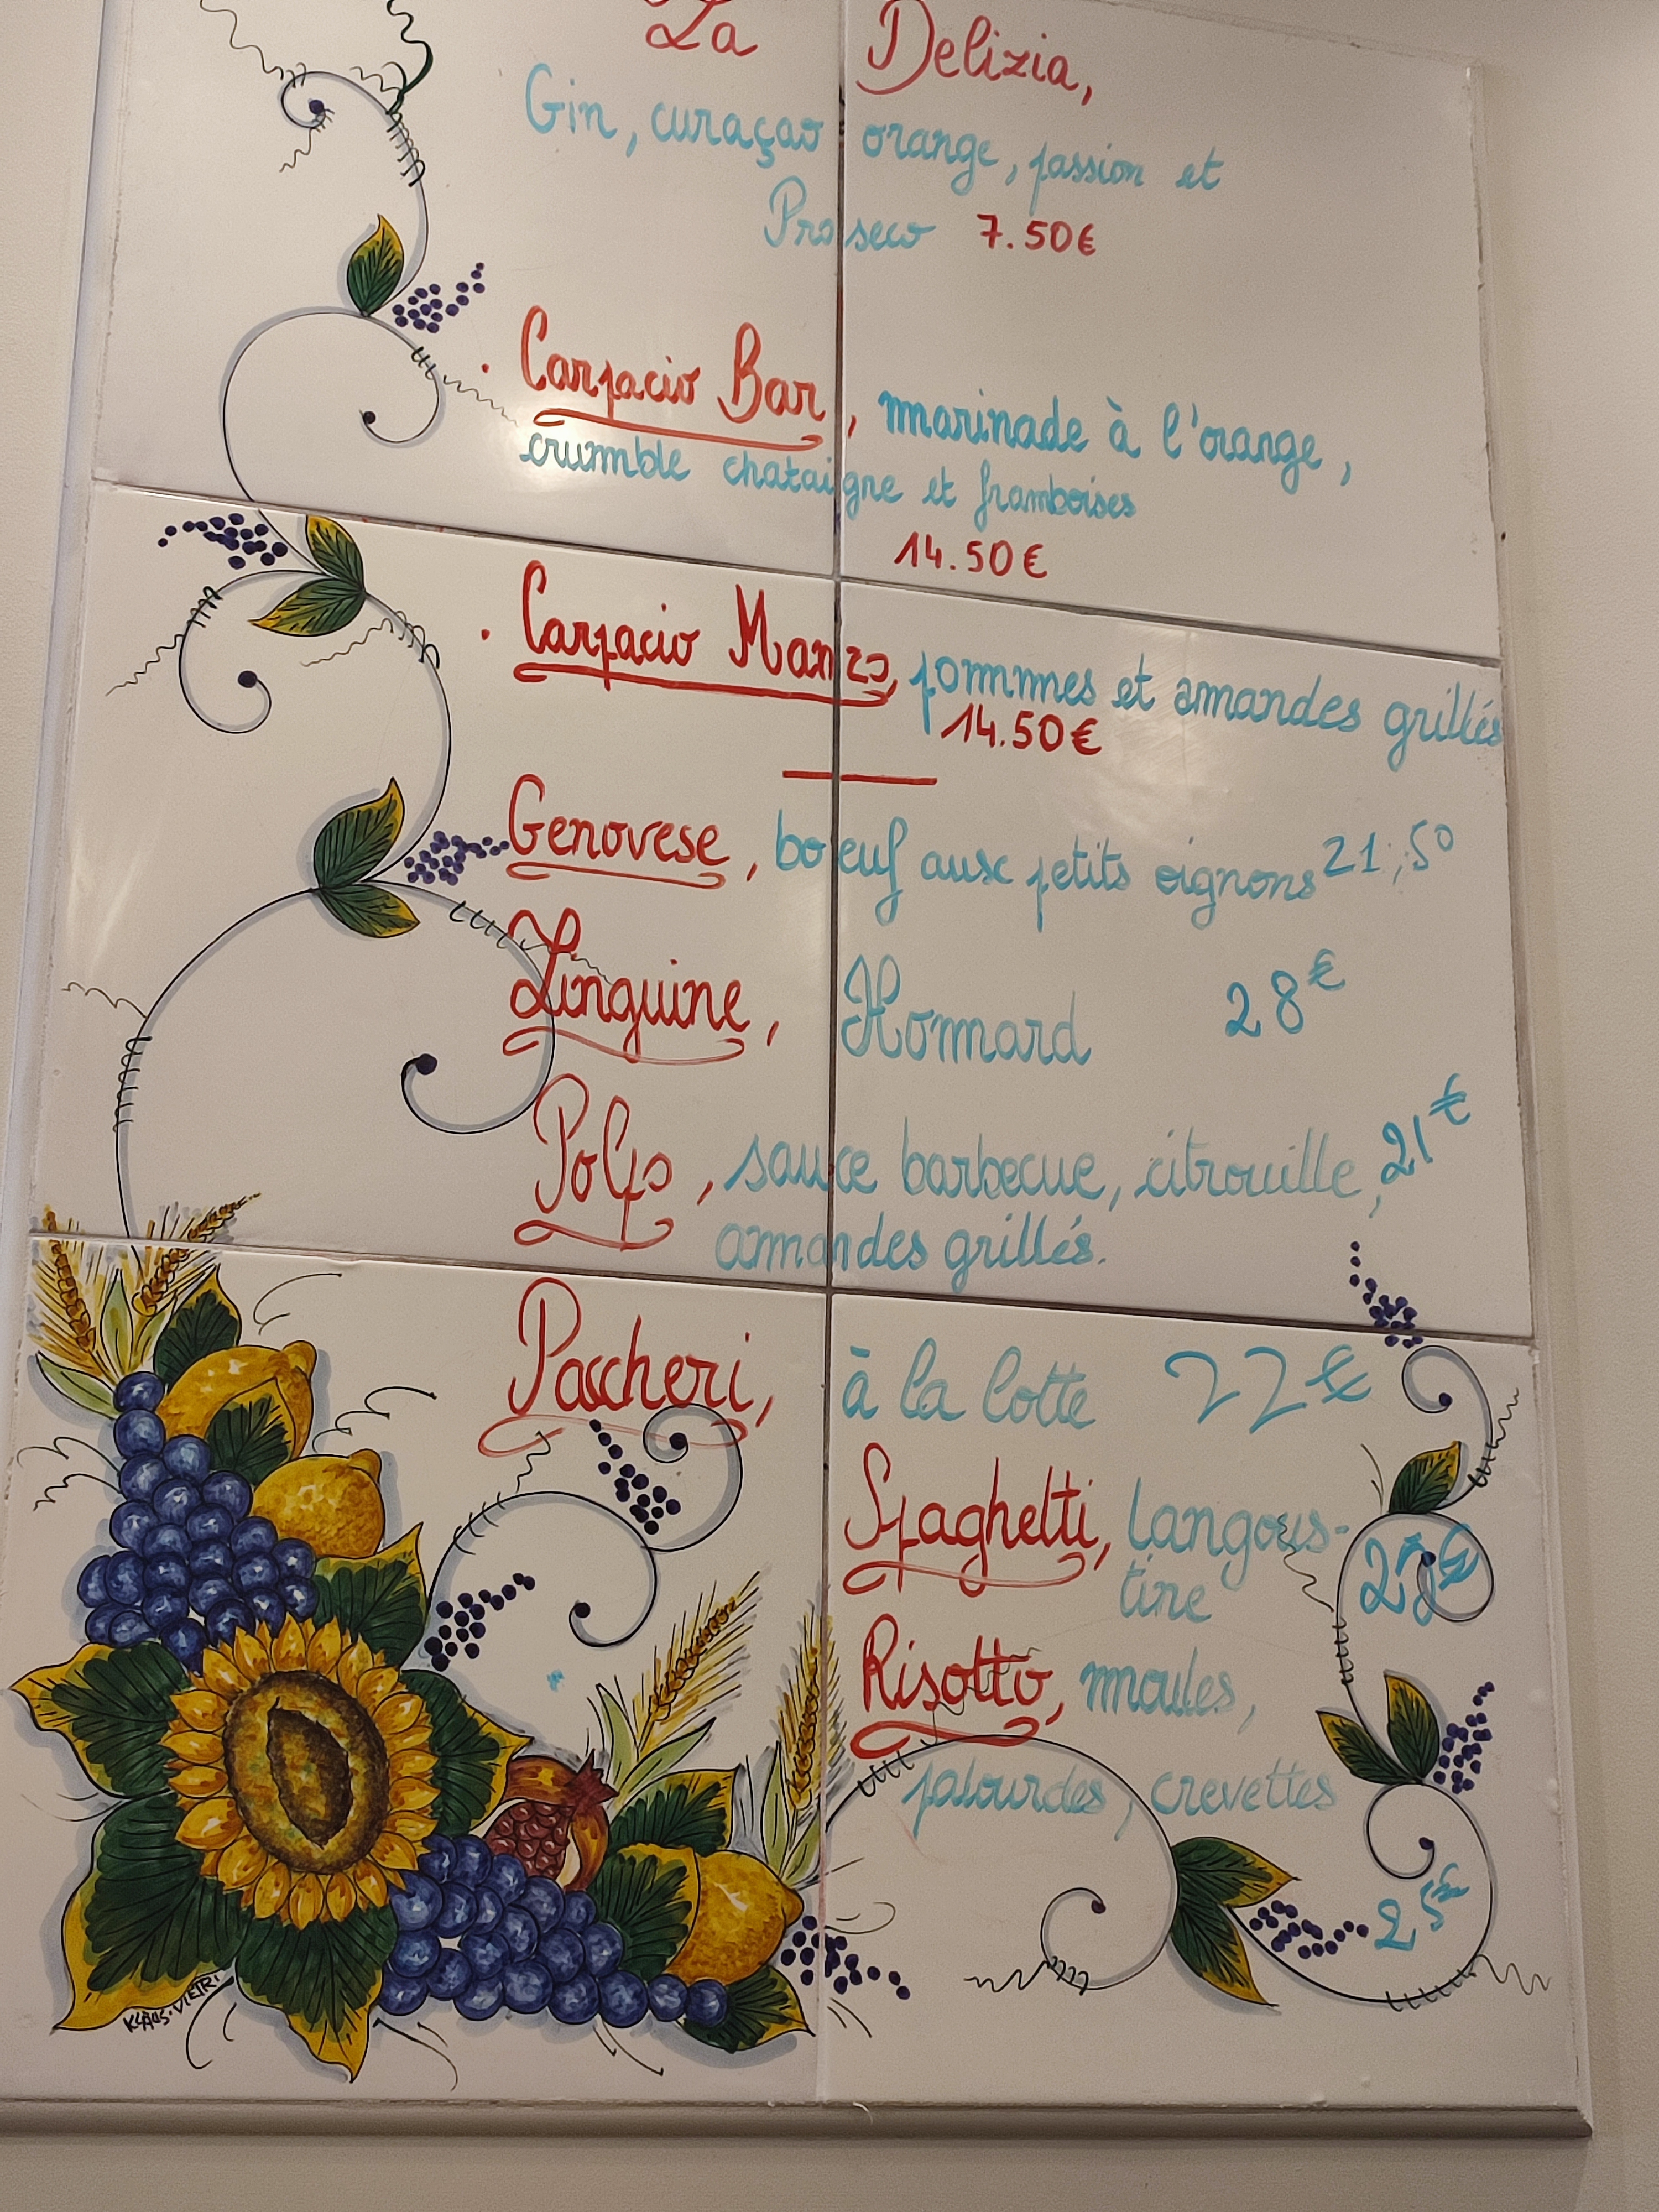 La Delizia,
Gin, curaçao orange, passion et
Proseco 7.50€
. Carpacio Bar, marinade à l'orange,
crumble chataigne et framboises
14.50€
. Carpacio Manzo, pommes et amandes grillés
14.50€
Genovese, boeuf aux petits oignons 21,50
Linguine, Homard 28€
Polpo, sauce barbecue, citrouille, 21€
amandes grillés.
Paccheri, à la lotte 22€
Spaghetti, langous-
tine
Risotto, moules,
palourdes, crevettes
25€
KLAUS·VIETRI